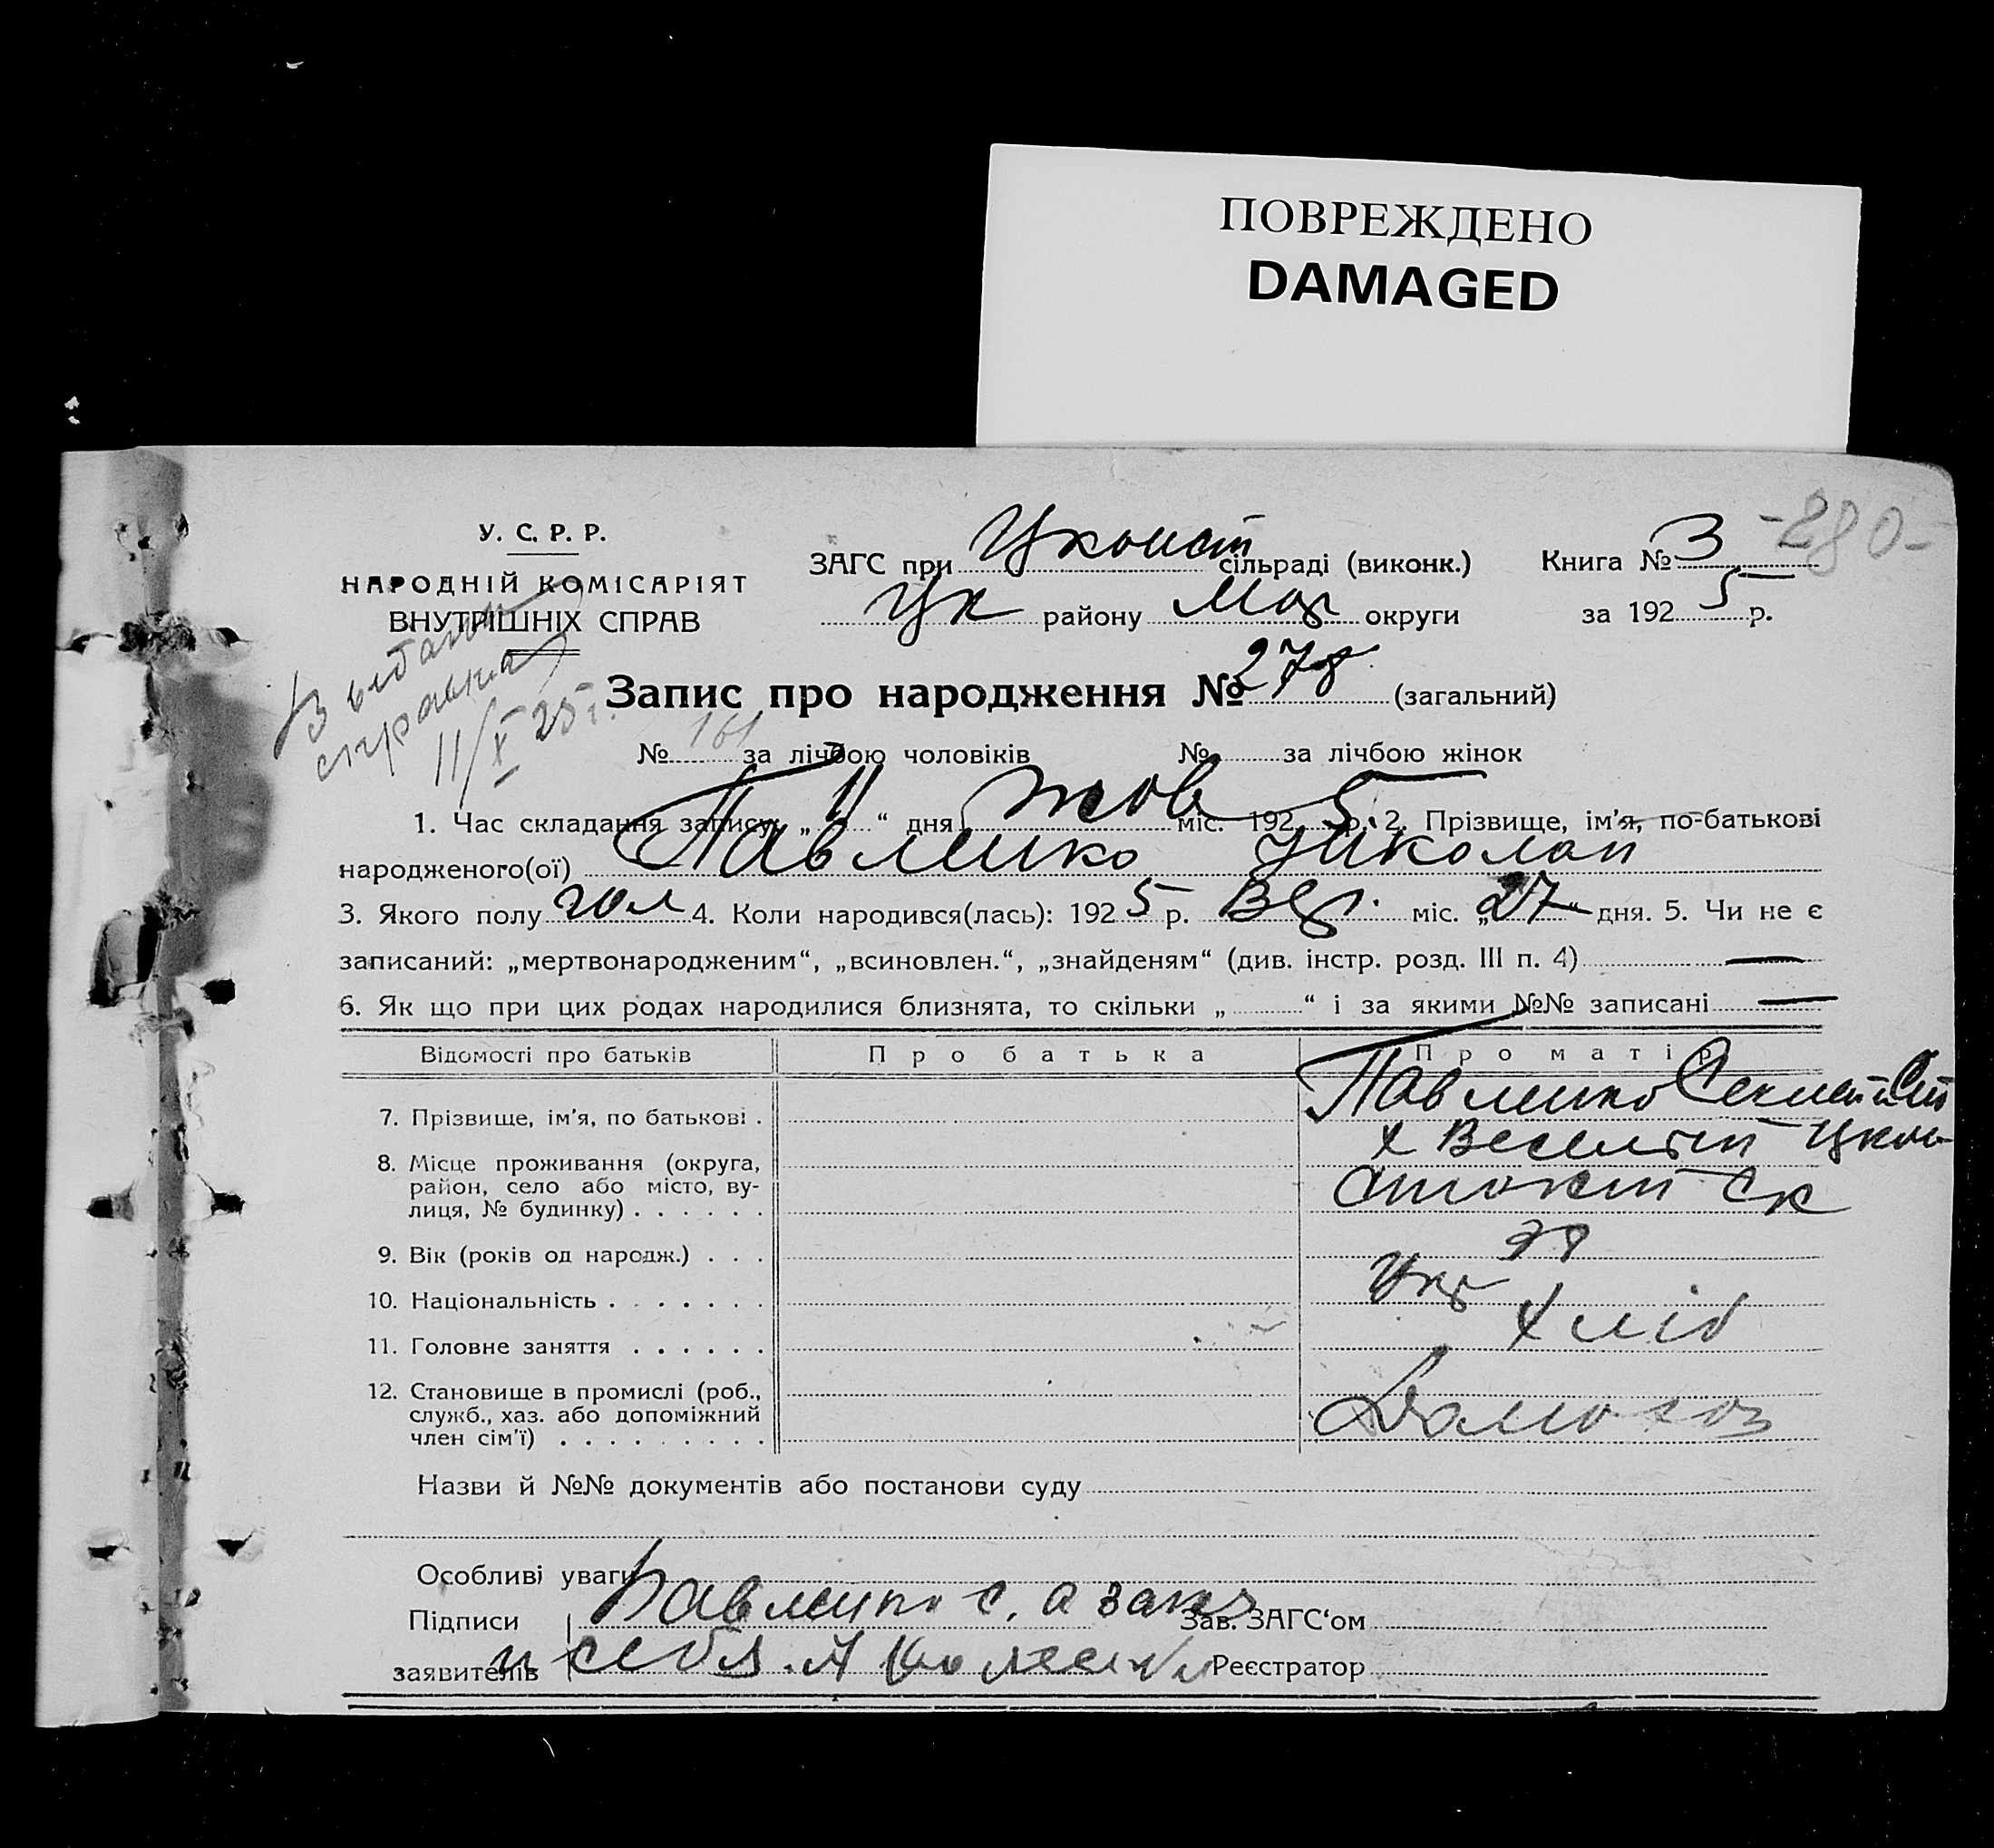 ПОВРЕЖДЕНО
DAMAGED
У. С. Р. Р.
НАРОДНІЙ КОМІСАРІЯТ
ВНУТРІШНІХ СПРАВ
ЗАГС при Уконст сільраді (виконк.) Книга № 3 -280-
Ук району округи за 1925 р.
Выдана
справка
11/X 25 г.
Запис про народження № 278 (загальний)
№ 161 за лічбою чоловіків № за лічбою жінок
1. Час складання запису: „11“ дня жов міс. 1925 р. 2. Прізвище, ім'я, по-батькові
народженого(ої) Павленко Николай
3. Якого полу чол 4. Коли народився(лась): 1925 р. Вер. міс. „27“ дня. 5. Чи не є
записаний: „мертвонародженим“, „всиновлен.“, „знайденям“ (див. інстр. розд. III п. 4) —
6. Як що при цих родах народилися близнята, то скільки „ “ і за якими №№ записані —
Відомості про батьків Про батька Про матір
7. Прізвище, ім'я, по батькові . Павленко
8. Місце проживання (округа, х Веселый
район, село або місто, ву-
лиця, № будинку) . . . . . .
9. Вік (років од народж.) . . .
10. Національність . . . . . . . Укр
11. Головне заняття . . . . . . Хліб
12. Становище в промислі (роб., Домохоз
служб., хаз. або допоміжний
член сім'ї) . . . . . . . . .
Назви й №№ документів або постанови суду
Особливі уваги
Підписи Павленко с. а за нея Зав. ЗАГС'ом
заявителів и себя А Реєстратор